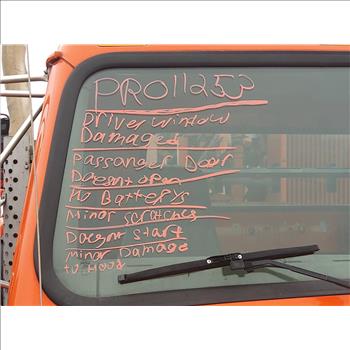 PRO11253
Driver window
Damaged
Passanger Door
Doesnt open
No Batterys
Minor scratches
Doesnt start
Minor Damage
to Hood